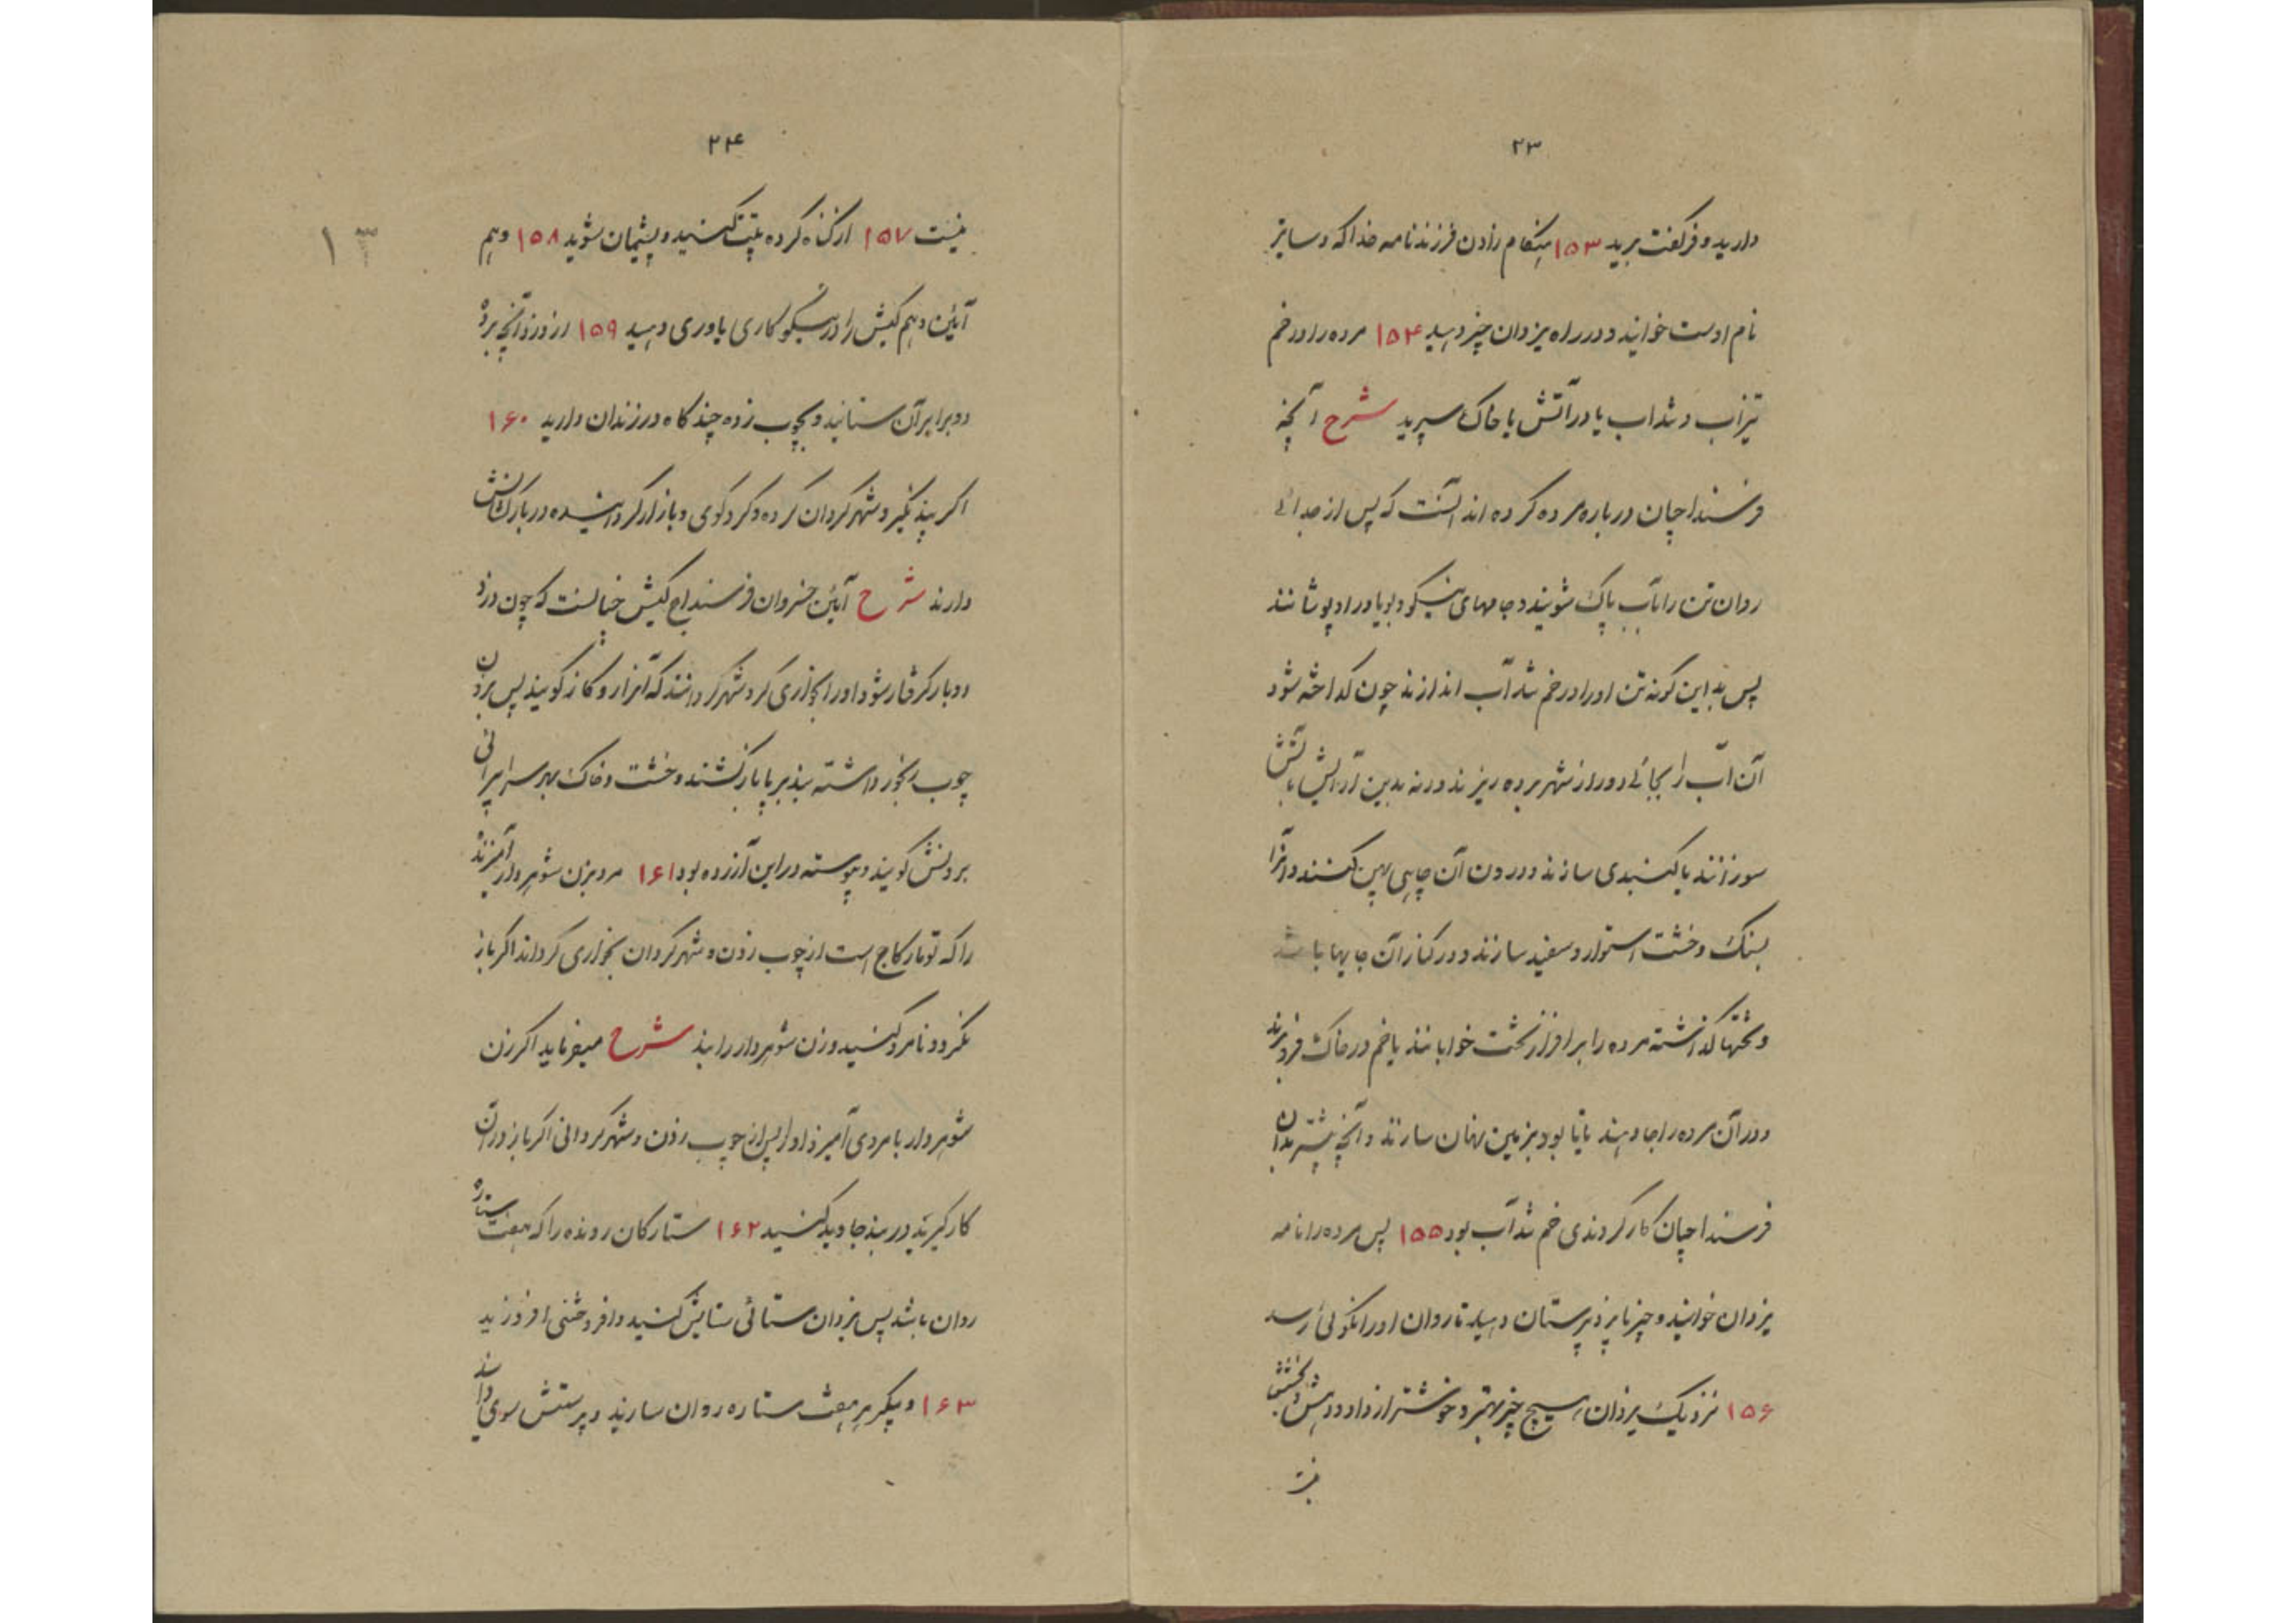 ۲۳
دارید و فرکفت برید ۱۵۳ هنکام زادن فرزند نامه خدا که دساتیر
نام اوست خوانید و در راه یزدان چیز دهید ۱۵۴ مرده را در خم
تیزاب و تنداب یا در آتش یا خاک سپرید شرح آنچه
فرسنداجیان درباره مرده کرده اند آنست که پس از جدائی
روان تن را بآب پاک شویند و جامهای نیکو و بویا در او پوشانند
پس بدین کونه تن او را در خم تندآب اندازند چون کداخته شود
آن آب را بجائے دور از شهر برده ریزند ورنه بدین آرایش بآتش
سوزانند یا کنبدی سازند و درون آن چاهی پهن کنند و آنرا
بسنک و خشت استوار و سفید سازند و در کنار آن جایها باشد
و تختها کذاشته مرده را بر افراز تخت خوابانند یا خم در خاک فرو برند
و در آن مرده را جا دهند یا تابود بزمین نهان سازند و آنچه بیشتر بدان
فرسنداجیان کار کردندی خم تندآب بود ۱۵۵ پس مرده را نامه
یزدان خوانید و چیز بایزد پرستان دهید تا روان او را نکوئی رسد
۱۵۶ نزد یک یزدان هیچ چیز بهتر و خوشتر از داد و دهش و بخشش
نیست
۲۴
نیست ۱۵۷ از کناه کرده پتت کنید و پشیمان شوید ۱۵۸ و هم
آئین و هم کیش را در نیکو کاری یاوری دهید ۱۵۹ از دزد آنچه برد
دو برابر آن ستانید و بچوب زده چند کاه در زندان دارید ۱۶۰
اکر پند نکیرد شهر کردان کرده و کرد کوی و بازار کردانیده در بارکشانش
دارند شرح آئین خسروان فرسنداج کیش چنانست که چون دزد
دو بار کرفتار شود او را بخواری کرد شهر کردانند که آنرا رو کار کویند پس بردن
چوب رنجور داشته بند بر پا بارکشند و خشت و خاک بهر سرا پرانی
بردنش کویند و پیوسته در این آزرده بود ۱۶۱ مرد بزن شوهر دار آمیزنده
را که تو تار کاج است از چوب زدن و شهر کردان بخواری کردانند اکر باز
نکردد نامرد کنید و زن شوهر دار را بند شرح میفرماید اکر زن
شوهر دار با مردی آمیزد او را پس از چوب زدن و شهر کردانی اکر باز در آن
کار کیرند در بند جاوید کنید ۱۶۲ ستارکان رونده را که هفت ستاره
روان باشد پس یزدان ستائی ستایش کنید و افروختنی افروزید
۱۶۳ و پیکر هر هفت ستاره روان سازید و پرستش سوی دانید